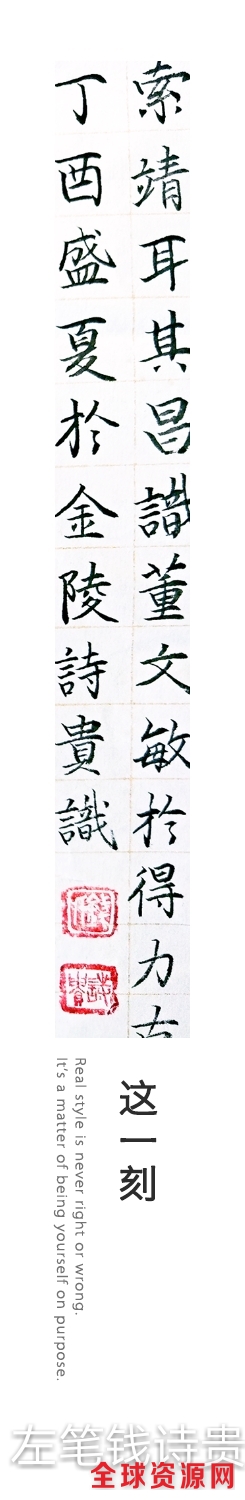 索靖耳其昌識董文敏於得力
丁酉盛夏於金陵詩貴識
这一刻
Real style is never right or wrong.
It's a matter of being yourself on purpose.
左笔钱诗贵
全球资源网